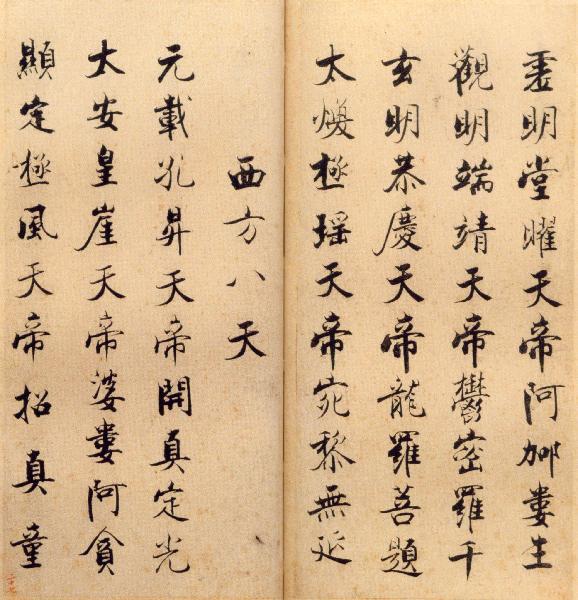 虛明堂曜天帝阿加婁生
觀明端靖天帝鬱密羅千
玄明恭慶天帝龍羅菩題
太煥極瑶天帝宛黎無延
西方八天
元載孔昇天帝開真定光
太安皇崖天帝婆婁阿貪
顯定極風天帝招真童